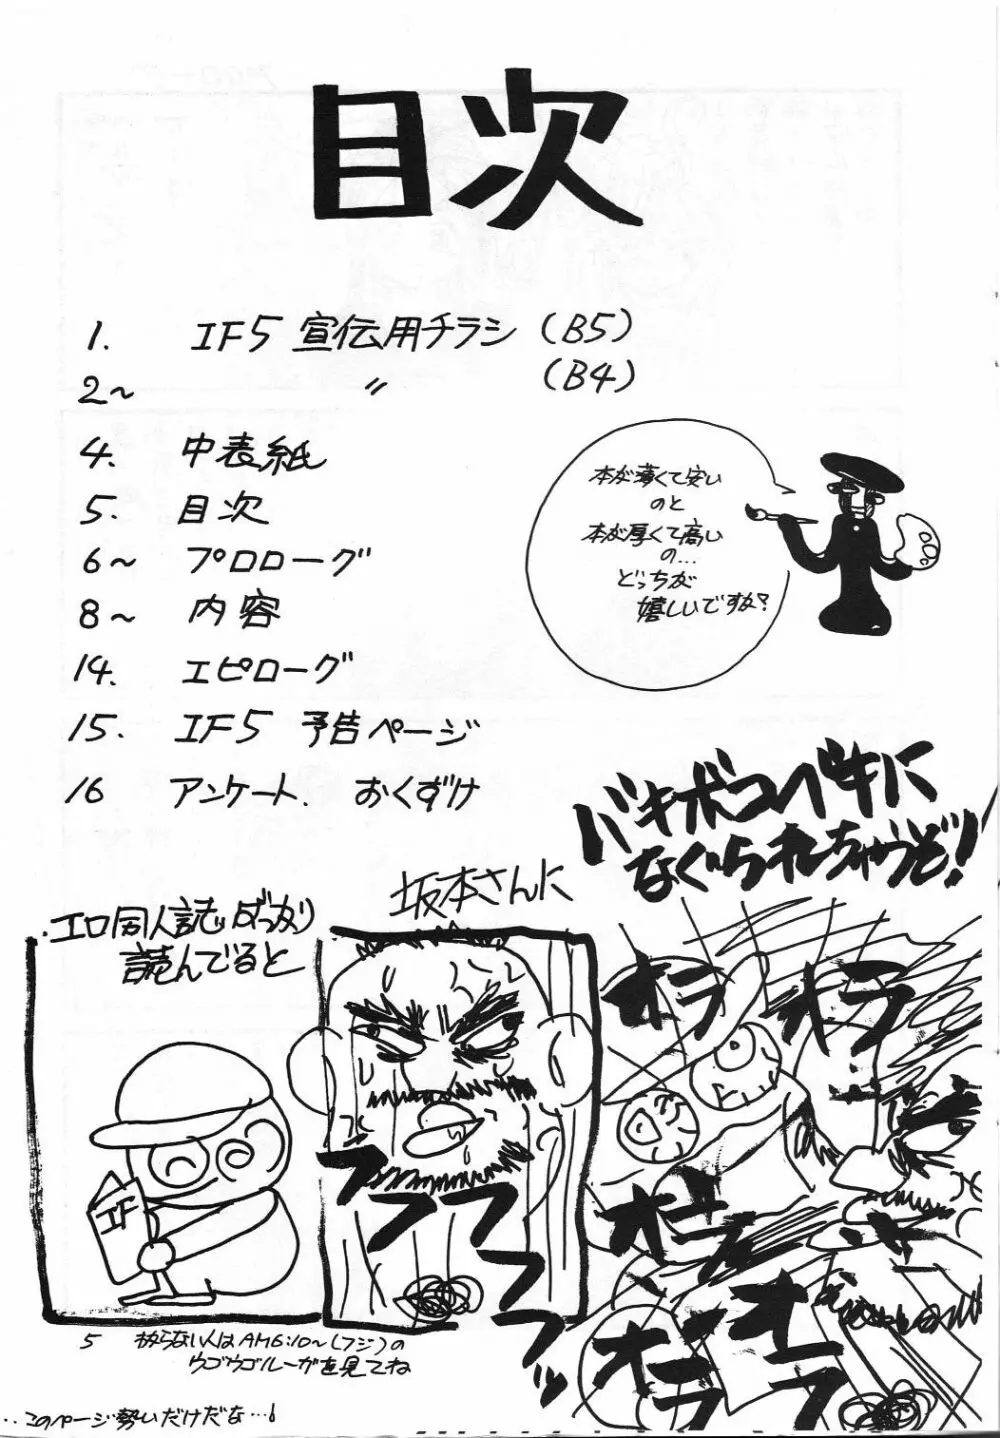 目次
1. IF5 宣伝用チラシ (B5)
2~ 〃 (B4)
4. 中表紙
5. 目次
6~ プロローグ
8~ 内容
14. エピローグ
15. IF5 予告ページ
16 アンケート. おくずけ
本が薄くて安い
のと
本が厚くて高い
の…
どっちが
嬉しいですか?
エロ同人誌ばっかり
読んでると
坂本さんに
バキボコベキに
なぐられちゃうぞ!
IF
フフフフフフッ
オラ
オラ
オラ
オラ
オラ
5 わからない人はAM6:10~(フジ)の
ウゴウゴルーガを見てね
‥このページ勢いだけだな…!